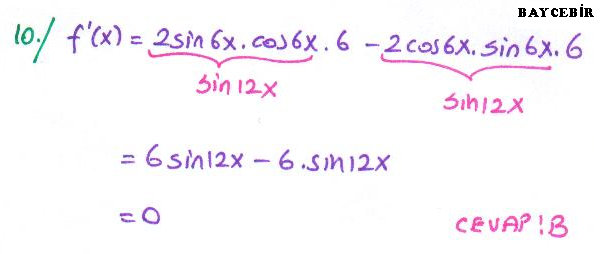 BAYCEBİR
10./ f'(x) = 2sin6x.cos6x.6 - 2cos6x.sin6x.6
sin12x sin12x
= 6sin12x - 6.sin12x
= 0
CEVAP:B